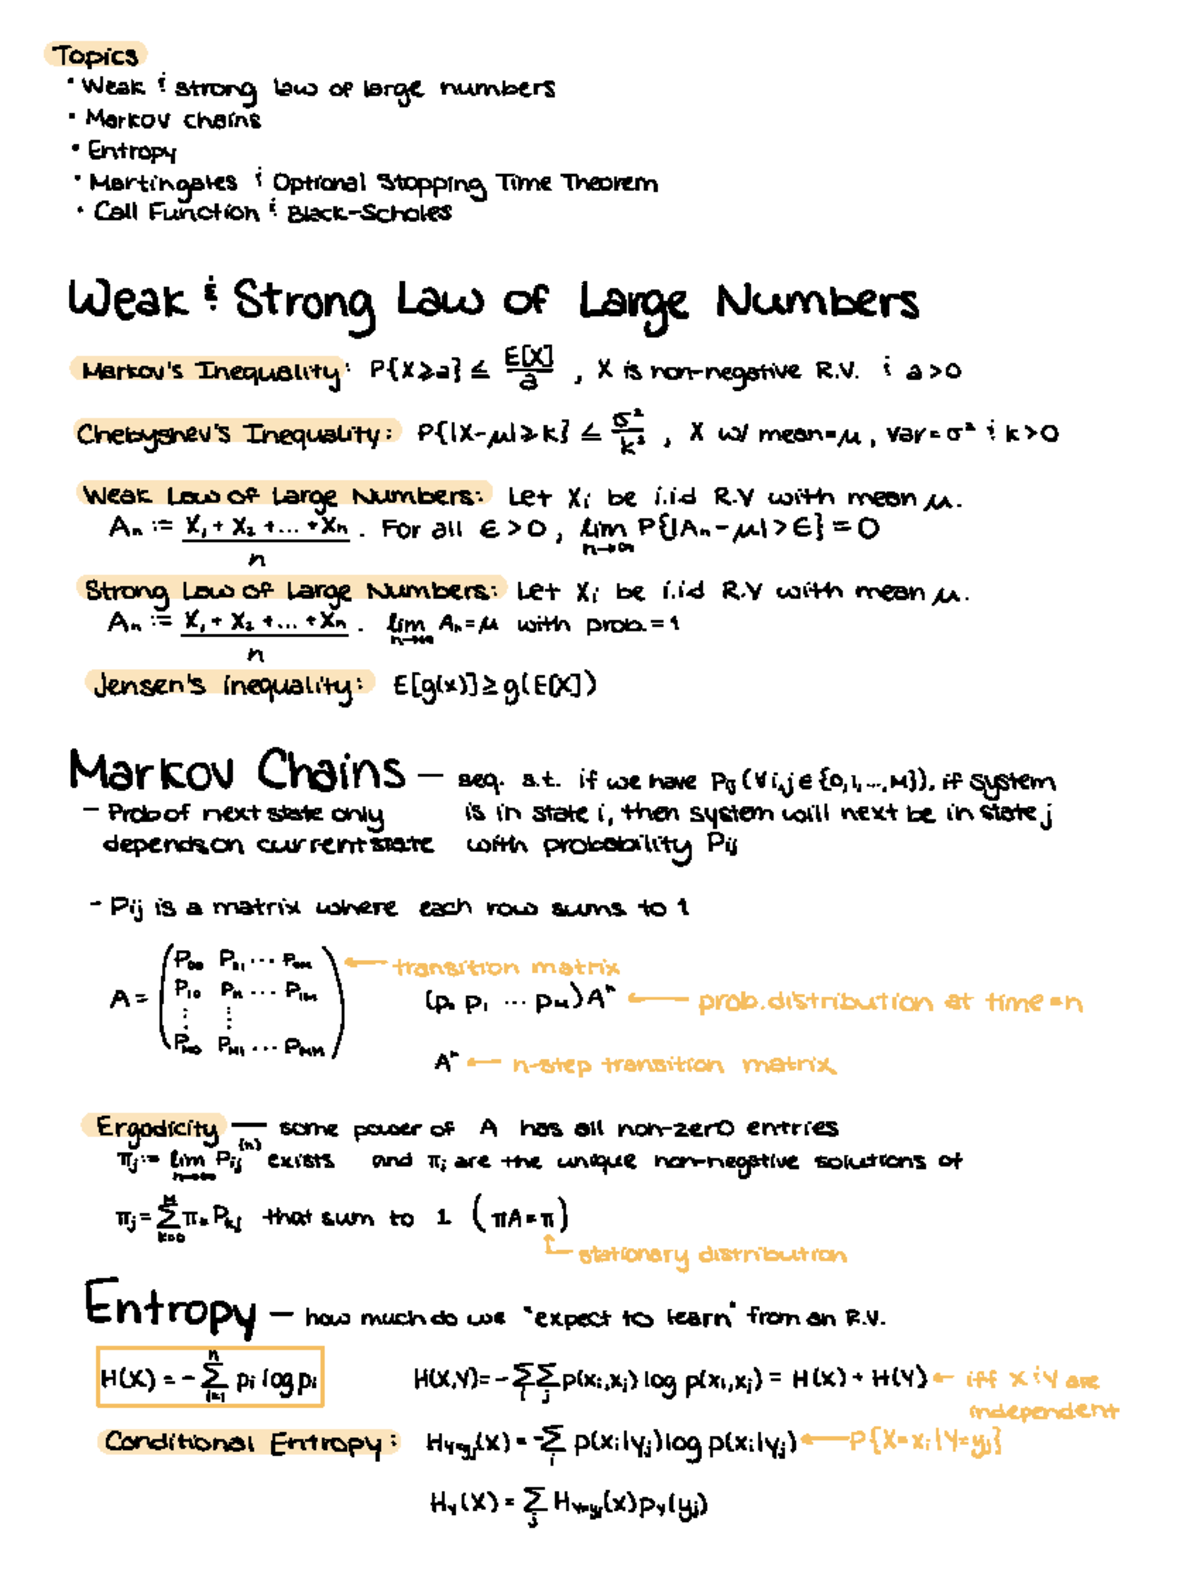 Topics
• Weak & strong law of large numbers
• Markov chains
• Entropy
• Martingales & Optional Stopping Time Theorem
• Call Function & Black-Scholes
Weak & Strong Law of Large Numbers
Markov's Inequality: P{X≥a} ≤ E[X]/a , X is non-negative R.V. & a>0
Chebyshev's Inequality: P{|X-μ|≥k} ≤ σ²/k² , X w/ mean=μ, var=σ² & k>0
Weak Law of Large Numbers: Let Xᵢ be i.i.d R.V with mean μ.
Aₙ := (X₁ + X₂ + ... + Xₙ)/n . For all ε>0, lim n→∞ P{|Aₙ-μ|>ε} = 0
Strong Law of Large Numbers: Let Xᵢ be i.i.d R.V with mean μ.
Aₙ := (X₁ + X₂ + ... + Xₙ)/n . lim n→∞ Aₙ=μ with prob.=1
Jensen's inequality: E[g(x)] ≥ g(E[X])
Markov Chains — seq. s.t. if we have Pᵢⱼ (∀i,j ∈ {0,1,...,M}), if system
is in state i, then system will next be in state j
with probability Pᵢⱼ
- Prob of next state only
depends on current state
- Pij is a matrix where each row sums to 1
A = (P₀₀ P₀₁ ... P₀ₘ
P₁₀ P₁₁ ... P₁ₘ
⋮ ⋮
Pₘ₀ Pₘ₁ ... Pₘₘ) ← transition matrix
(p₀ p₁ ... pₘ)Aⁿ ← prob. distribution at time=n
Aⁿ ← n-step transition matrix
Ergodicity — some power of A has all non-zero entries
πⱼ := lim n→∞ Pᵢⱼ⁽ⁿ⁾ exists and πⱼ are the unique non-negative solutions of
πⱼ = Σ k=0 M πₖ Pₖⱼ that sum to 1 (πA=π)
stationary distribution
Entropy — how much do we "expect to learn" from an R.V.
H(X) = - Σ i=1 n pᵢ log pᵢ
H(X,Y) = - Σᵢ Σⱼ p(xᵢ,xⱼ) log p(xᵢ,xⱼ) = H(X) + H(Y) ← iff X & Y are
independent
Conditional Entropy: H_Y=yⱼ(X) = -Σᵢ p(xᵢ|yⱼ) log p(xᵢ|yⱼ) ← P{X=xᵢ|Y=yⱼ}
H_Y(X) = Σⱼ H_Y=yⱼ(X) p_Y(yⱼ)